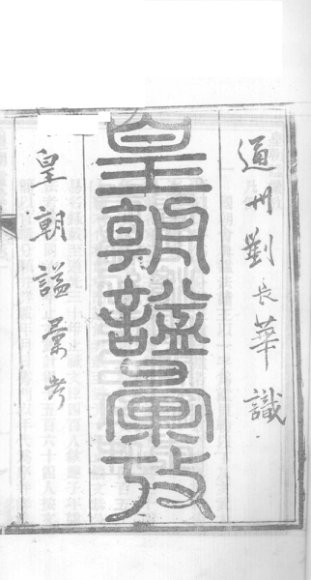 通州劉長華識
皇朝謚彙攷
皇朝謚彙考